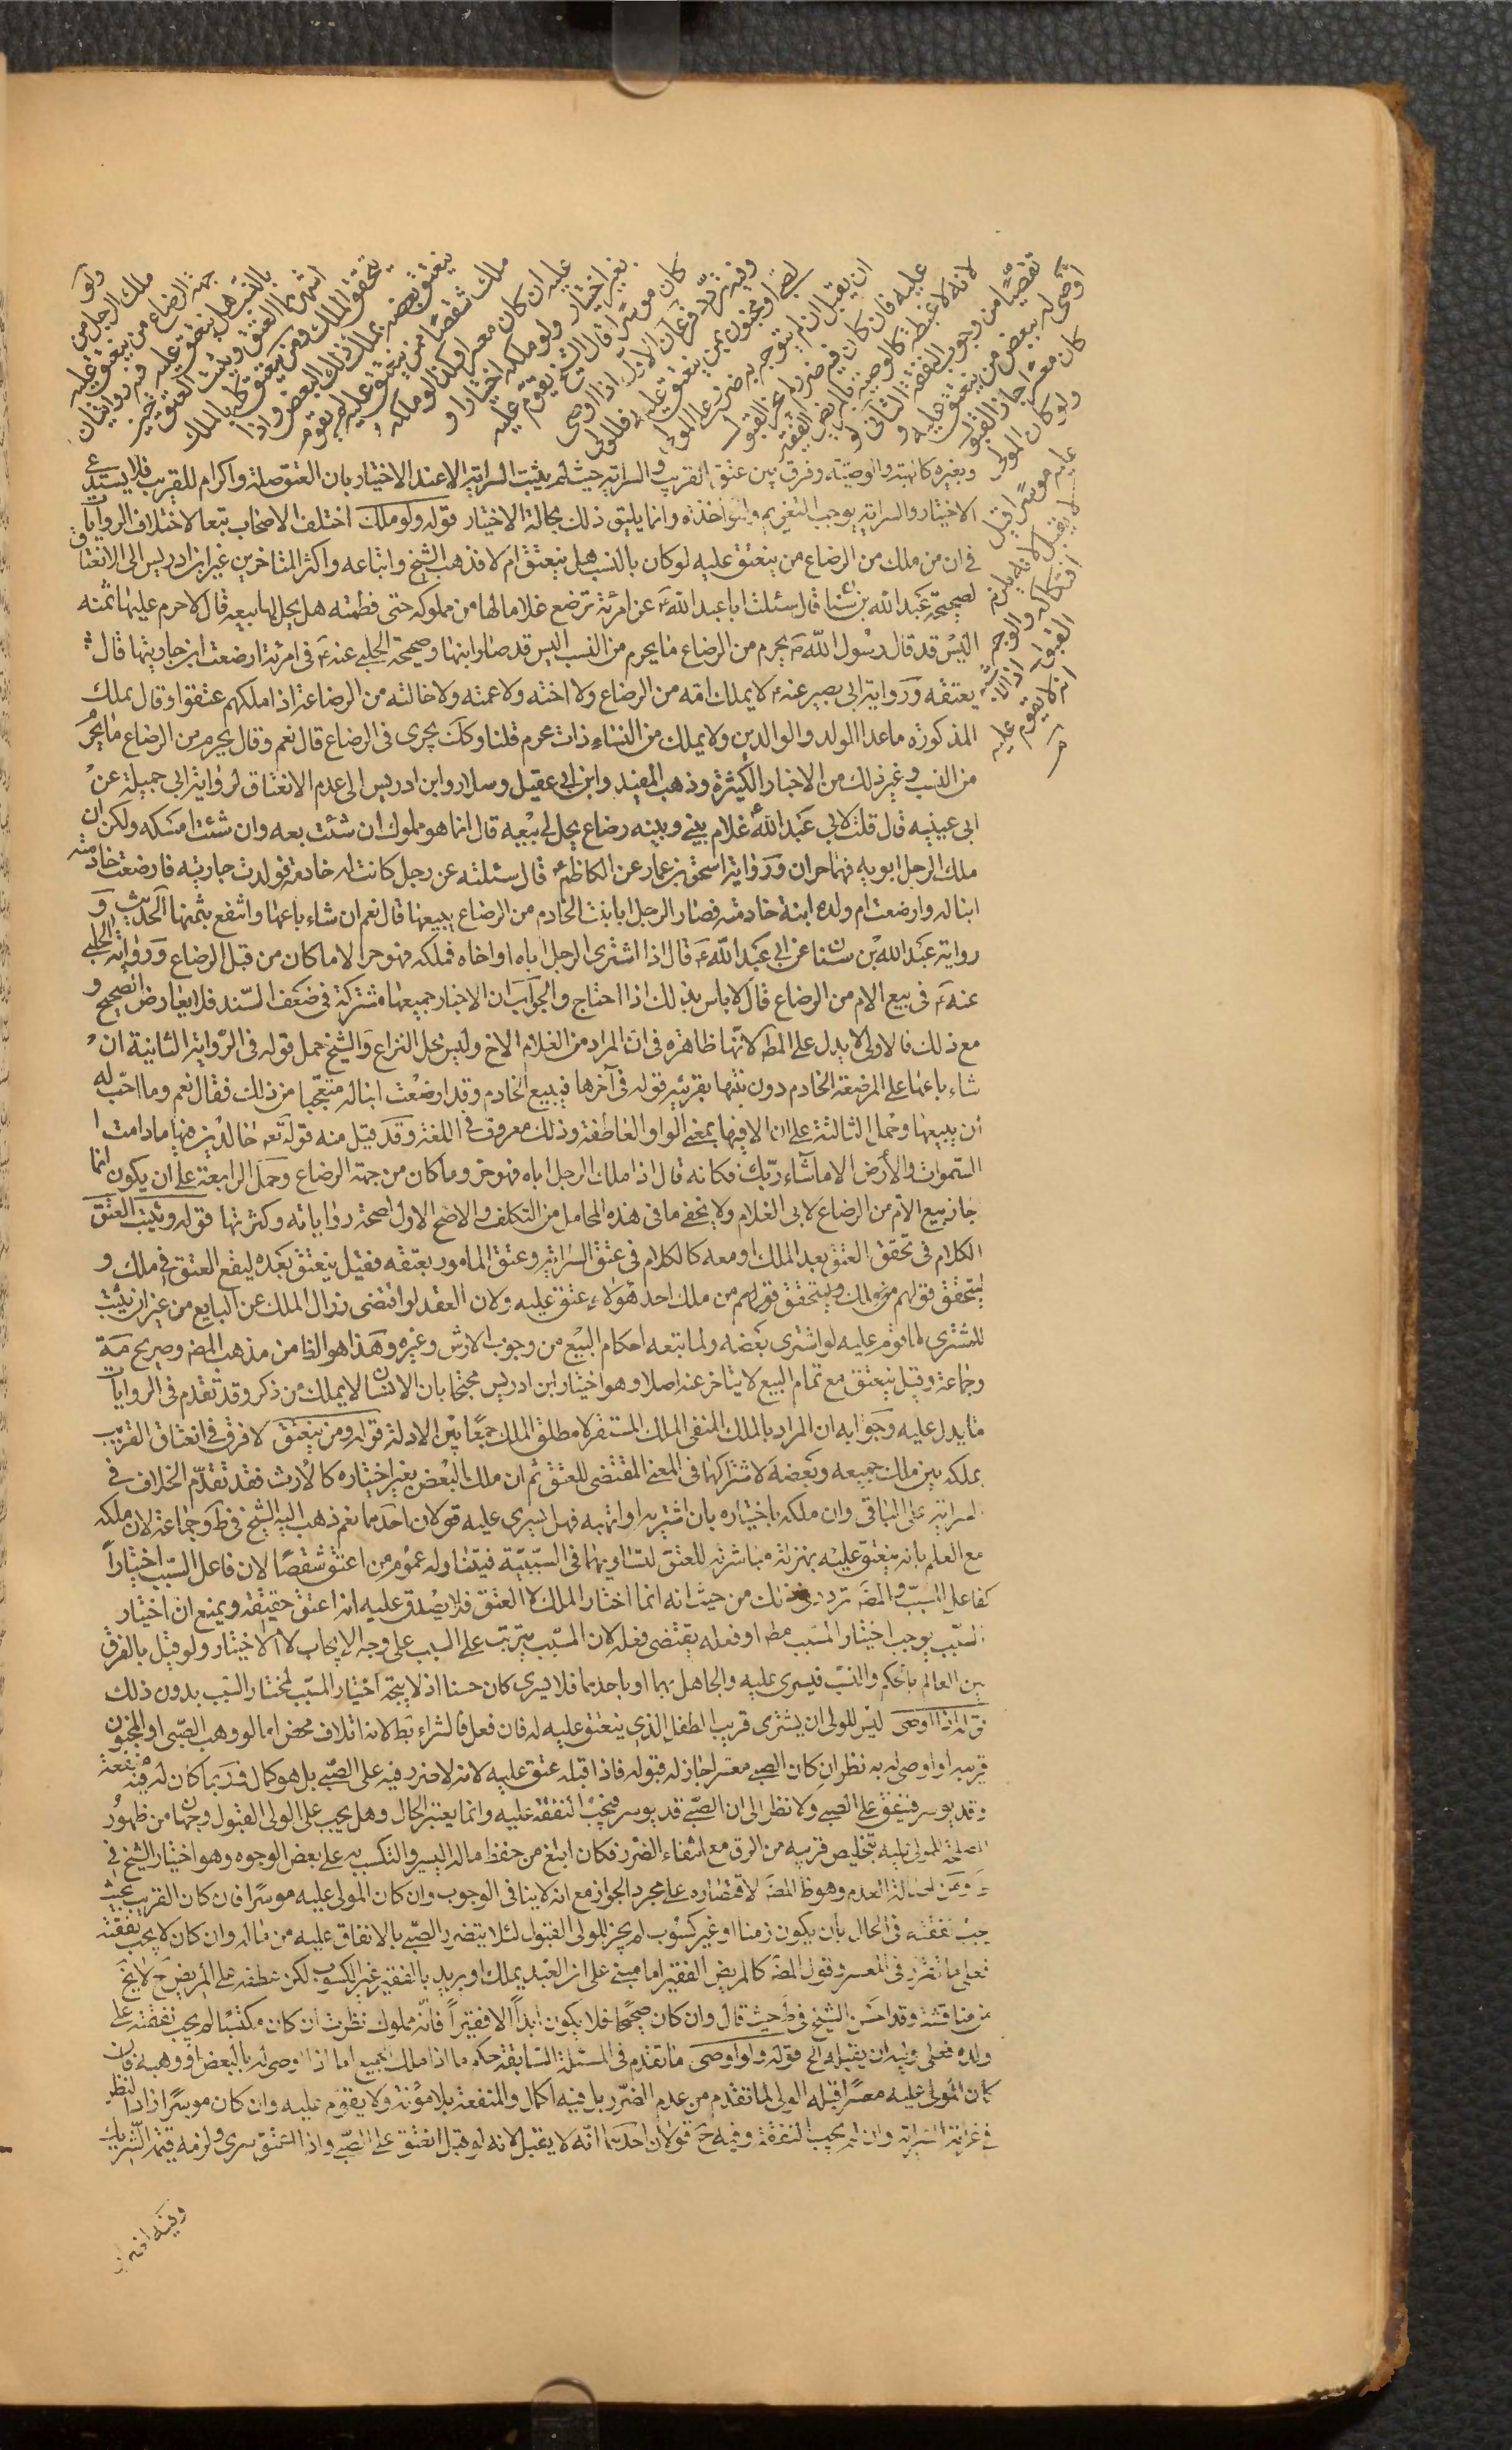 ولو
ملك الرجل من
جهة الرضاع من ينعتق عليه
بالنسب هل ينعتق عليه فيه روايتان
اشهرهما العتق ويثبت العتق حين
يتحقق الملك ومن ينعتق كله بالملك
ينعتق بعضه بملك ذلك البعض واذا
ملك شقصا ممن ينعتق عليه لم يقوم
عليه ان كان معسرا وكذا لو ملكه
بغير اختيار ولو ملكه اختيارا و
كان موسرا قال الشيخ يقوم عليه
وفيه تردد فرعان الاول اذا اوصى
لصبي او مجنون بمن ينعتق عليه فللولي
ان يقبل ان لم يتوجه به ضرر على المولى
عليه فان كان فيه ضرر لم يجز القبول
لانه لا غبطة كالوصية بالمريض الفقير
تفصيا من وجوب النفقة الثاني لو
اوصى له ببعض من ينعتق عليه و
كان معسرا جاز القبول
ولو كان المولى
عليه موسرا قيل
لا يقبل لانه يلزم
افتكاكه والوجه
القبول اذ الاشبه
انه لا يقوم عليه
وبغيره كالهبة والوصية وفرق بين عتق القريب والسراية حيث لم يثبت السراية الا عند الاختيار بان العتق صلة واكرام للقريب فلا يستدعي
الاختيار والسراية يوجب التغريم والمؤاخذة وانما يليق ذلك بحالة الاختيار قوله ولو ملك اختلف الاصحاب تبعا لاختلاف الروايات
في ان من ملك من الرضاع من ينعتق عليه لو كان بالنسب هل ينعتق ام لا فذهب الشيخ واتباعه واكثر المتاخرين غير ابن ادريس الى الانعتاق
لصحيحة عبد الله بن سنان قال سئلت ابا عبد الله ع عن امرئة ترضع غلاما لها من مملوكة حتى فطمته هل يحل لها بيعه قال لا حرم عليها ثمنه
اليس قد قال رسول الله ص يحرم من الرضاع ما يحرم من النسب اليس قد صار ابنها وصحيحة الحلبي عنه ع في امرئة ارضعت ابن جاريتها قال
يعتقه ورواية ابي بصير عنه ع لا يملك امه من الرضاع ولا اخته ولا عمته ولا خالته من الرضاعة اذا ملكهم عتقوا وقال يملك
المذكورة ما عدا الولد والوالدين ولا يملك من النساء ذات محرم قلنا وكذلك يجرى في الرضاع قال نعم وقال يحرم من الرضاع ما يحرم
من النسب وغير ذلك من الاخبار الكثيرة وذهب المفيد وابن ابي عقيل وسلار وابن ادريس الى عدم الانعتاق لرواية ابي جميلة عن
ابي عيينه قال قلت لابي عبد الله ع غلام بيني وبينه رضاع يحل لي بيعه قال انما هو مملوك ان شئت بعه وان شئت امسكه ولكن ان
ملك الرجل ابويه فهما حران ورواية اسحق بن عمار عن الكاظم ع قال سئلته عن رجل كانت له خادمة فولدت جاريته فارضعت خادمته
ابنا له وارضعت ام ولده ابنة خادمته فصار الرجل ابا بنت الخادم من الرضاع يبيعها قال نعم ان شاء باعها وانتفع بثمنها الحديث و
رواية عبد الله بن سنان عن ابي عبد الله ع قال اذا اشترى الرجل اباه او اخاه فملكه فهو حر الا ما كان من قبل الرضاع ورواية الحلبي
عنه ع في بيع الام من الرضاع قال لا باس بذلك اذا احتاج والجواب ان الاخبار جميعها مشتركة في ضعف السند فلا يعارض الصحيح و
مع ذلك فالاولى لا يدل على المط لانها ظاهرة في ان المراد من الغلام الاخ وليس محل النزاع والشيخ حمل قوله في الرواية الثانية ان
شاء باعها على المرضعة الخادم دون بنتها بقرينة قوله في آخرها فيبيع الخادم وقد ارضعت ابنا له متعجبا من ذلك فقال نعم وما احب له
ان يبيعها وحمل الثالثة على ان الا فيها بمعنى الواو العاطفة وذلك معروف في اللغة وقد قيل منه قوله تعم خالدين فيها ما دامت
السموات والارض الا ما شاء ربك فكانه قال اذا ملك الرجل اباه فهو حر وما كان من جهة الرضاع وحمل الرابعة على ان يكون انما
جاز بيع الام من الرضاع لابي الغلام ولا يخفى ما في هذه المحامل من التكلف والاصح الاول لصحة رواياته وكثرتها قوله ويثبت العتق
الكلام في تحقق العتق بعد الملك او معه كالكلام في عتق السراية وعتق المامور بعتقه فقيل ينعتق بعده ليقع العتق في ملك و
ليتحقق قولهم من ملك احد هؤلاء عتق عليه ولان العقد لو اقتضى زوال الملك عن البايع من غير ان يثبت
للمشترى لما قوم عليه لو اشترى بعضه ولما تبعه احكام البيع من وجوب الارش وغيره وهذا هو الظ من مذهب المصه وصريح مة
وجماعة وقيل ينعتق مع تمام البيع لا يتاخر عنه اصلا وهو اختيار ابن ادريس محتجا بان الانسان لا يملك من ذكر وقد تقدم في الروايات
ما يدل عليه وجوابه ان المراد بالملك المنفي الملك المستقر لا مطلق الملك جمعا بين الادلة قوله ومن ينعتق لا فرق في انعتاق القريب
بملكه بين ملك جميعه وبعضه لاشتراكهما في المعنى المقتضى للعتق ثم ان ملك البعض بغير اختياره كالارث فقد تقدم الخلاف في
السراية على الباقي وان ملكه باختياره بان اشتريه او اتهبه فهل يسرى عليه قولان احدهما نعم ذهب اليه الشيخ في ط وجماعة لان ملكه
مع العلم بانه ينعتق عليه بمنزلة مباشرته للعتق لتساويهما في السببية فيتناوله عموم من اعتق شقصا لان فاعل السبب اختيارا
كفاعل المسبب والمصه تردد في ذلك من حيث انه انما اختار الملك لا العتق فلا يصدق عليه انه اعتق حقيقة ويمنع ان اختيار
السبب يوجب اختيار المسبب مط او فعله يقتضى فعله لان المسبب يترتب على السبب على وجه الايجاب لا الاختيار ولو قيل بالفرق
بين العالم بالحكم والنسب فيسرى عليه والجاهل بهما او باحدهما فلا يسرى كان حسنا اذ لا يتجه اختيار المسبب لمختار السبب بدون ذلك
قوله اذا اوصى ليس للولى ان يشترى قريب الطفل الذي ينعتق عليه له فان فعل فالشراء بط لانه اتلاف محض اما لو وهب الصبى او المجنون
قريبه او اوصى له به نظر ان كان الصبي معسرا جاز له قبوله فاذا قبله عتق عليه لانه لا ضرر فيه على الصبي بل هو كمال وربما كان له فيه منفعة
وقد يوسر فينفق على الصبي ولا نظر الى ان الصبي قد يوسر فتجب النفقة عليه وانما يعتبر الحال وهل يجب على الولى القبول وجهان من ظهور
المصلحة للمولى عليه بتخليص قريبه من الرق مع انتفاء الضرر فكان ابلغ من حفظ ماله اليسير والتكسب به على بعض الوجوه وهو اختيار الشيخ في
ط ومن اصالة العدم وهو ظ المصه لاقتصاره على مجرد الجواز مع انه لا ينافي الوجوب وان كان المولى عليه موسرا فان كان القريب بحيث
يجب نفقته في الحال بان يكون زمنا او غير كسوب لم يجز للولى القبول لئلا يتضرر الصبي بالانفاق عليه من ماله وان كان لا يجب نفقته
فعلى ما تقرر في المعسر وقول المصه كالمريض الفقير اما مبنى على ان العبد يملك او يريد بالفقير غير الكسوب لكن عطفه على المريض ح لا يخ
من مناقشة وقد احسن الشيخ في ط حيث قال وان كان صحيحا فلا يكون ابدا الا فقيرا فانه مملوك نظرت ان كان مكتسبا لم يجب نفقته على
ولده فعلى وليه ان يقبله الخ قوله ولو اوصى ما تقدم في المسئلة السابقة حكم ما اذا ملك الجميع اما اذا اوصى له بالبعض او وهبه فان
كان المولى عليه معسرا قبله الولى لما تقدم من عدم الضرر بل فيه الكمال والمنفعة بلا مؤنة ولا يقوم عليه وان كان موسرا زاد النظر
في غرامة السراية وان لم يجب النفقة وفيه ح قولان احدهما انه لا يقبل لانه لو قبل انعتق على الصبي واذا انعتق سرى ولزمه قيمة الشريك